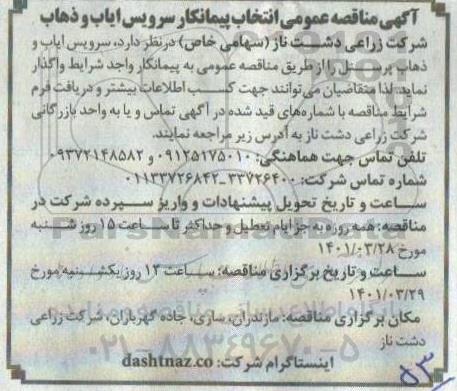 آگهی مناقصه عمومی انتخاب پیمانکار سرویس ایاب و ذهاب
شرکت زراعی دشت ناز (سهامی خاص) درنظر دارد، سرویس ایاب و
ذهاب پرسنل را از طریق مناقصه عمومی به پیمانکار واجد شرایط واگذار
نماید. لذا متقاضیان می‌توانند جهت کسب اطلاعات بیشتر و دریافت فرم
شرایط مناقصه با شماره‌های قید شده در آگهی تماس و یا به واحد بازرگانی
شرکت زراعی دشت ناز به آدرس زیر مراجعه نمایند.
تلفن تماس جهت هماهنگی: ۰۹۱۲۵۱۷۵۰۱۰ و ۰۹۳۷۲۱۴۸۵۸۲
شماره تماس شرکت: ۳۳۷۲۶۴۰۰-۰۱۱۳۳۷۲۶۸۴۲
ساعت و تاریخ تحویل پیشنهادات و واریز سپرده شرکت در
مناقصه: همه روزه به جز ایام تعطیل و حداکثر تا ساعت ۱۵ روز شنبه
مورخ ۱۴۰۱/۰۳/۲۸
ساعت و تاریخ برگزاری مناقصه: ساعت ۱۳ روز یکشنبه مورخ
۱۴۰۱/۰۳/۲۹
مکان برگزاری مناقصه: مازندران، ساری، جاده گهرباران، شرکت زراعی
دشت ناز
۰۲۱-۸۸۳۴۹۶۷۰-۵
اینستاگرام شرکت: dashtnaz.co
۵۳